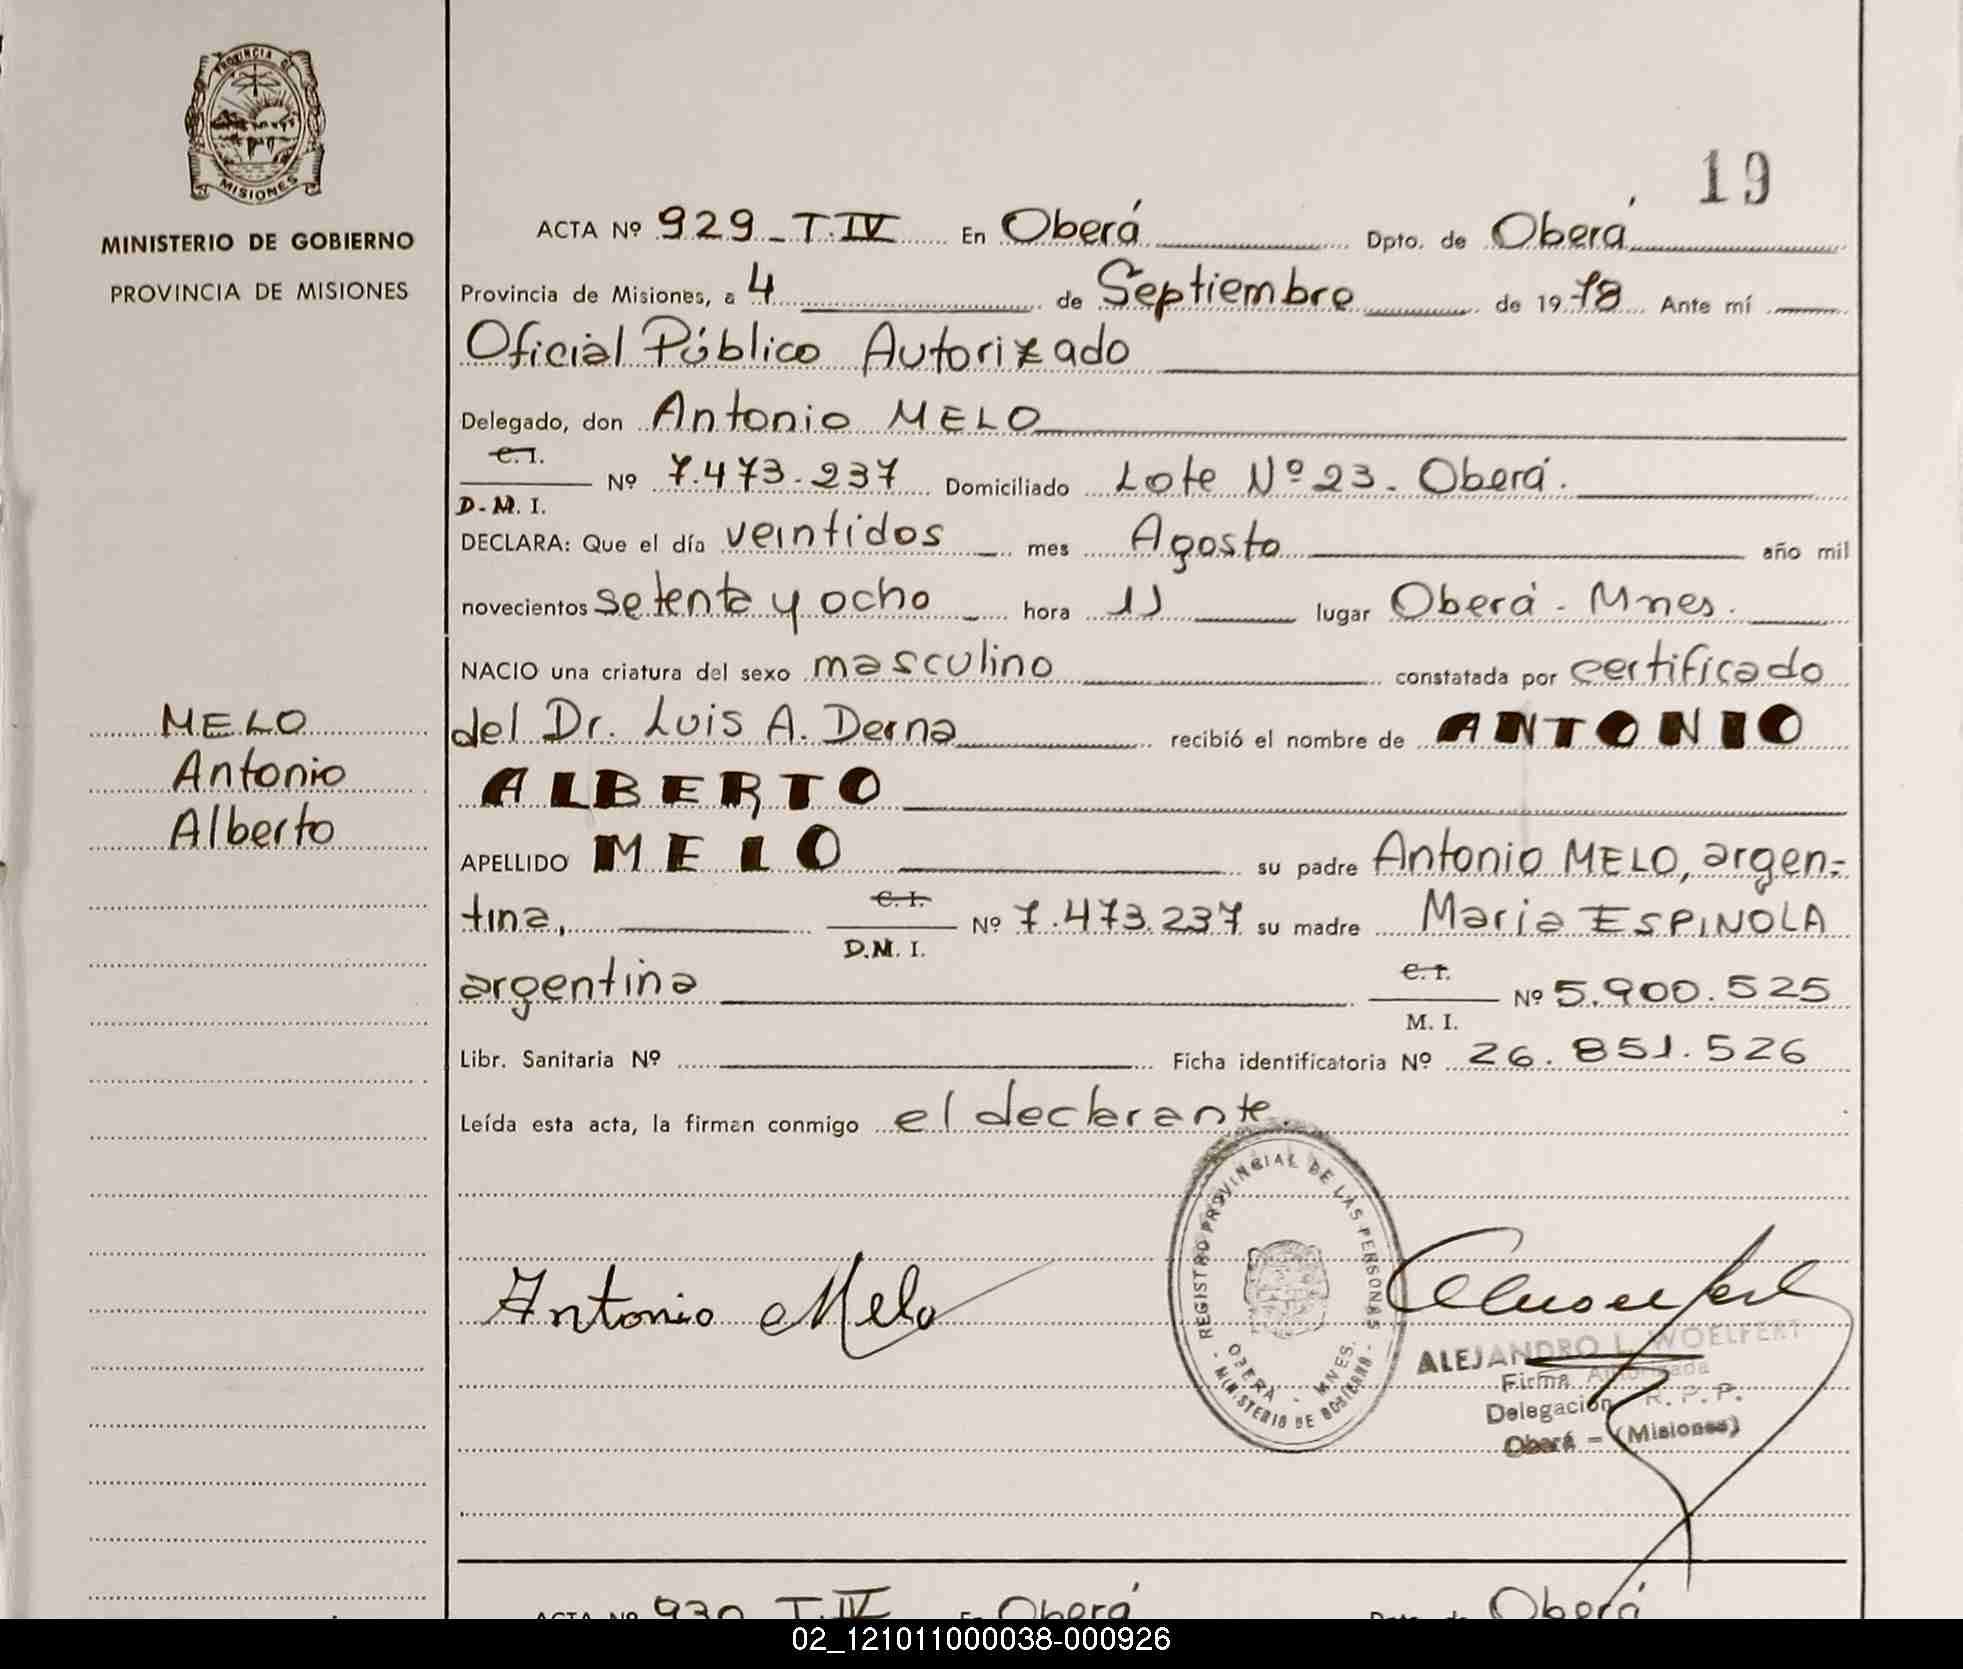 PROVINCIA DE
MISIONES
MINISTERIO DE GOBIERNO
PROVINCIA DE MISIONES
19
ACTA Nº 929 - T.IV En Oberá Dpto. de Oberá
Provincia de Misiones, a 4 de Septiembre de 1978 Ante mí
Oficial Público Autorizado
Delegado, don Antonio MELO
C.I.
Nº 7.473.237 Domiciliado Lote Nº 23. Oberá.
D.M.I.
DECLARA: Que el día veintidos mes Agosto año mil
novecientos setenta y ocho hora 11 lugar Oberá - Mnes.
NACIO una criatura del sexo masculino constatada por certificado
del Dr. Luis A. Derna recibió el nombre de ANTONIO
ALBERTO
APELLIDO MELO su padre Antonio MELO, argen-
tina, C.I. Nº 7.473.237 su madre Maria ESPINOLA
D.M.I.
argentina C.I. Nº 5.900.525
M.I.
Libr. Sanitaria Nº Ficha identificatoria Nº 26.851.526
Leída esta acta, la firman conmigo el declarante
MELO
Antonio
Alberto
Antonio Melo
REGISTRO PROVINCIAL DE LAS PERSONAS
OBERA - MNES.
- MINISTERIO DE GOBIERNO -
ALEJANDRO L. WOELFERT
Firma Autorizada
Delegación R.P.P.
Oberá - (Misiones)
ACTA Nº 930 T.IV En Oberá Dpto. de Oberá
02_121011000038-000926